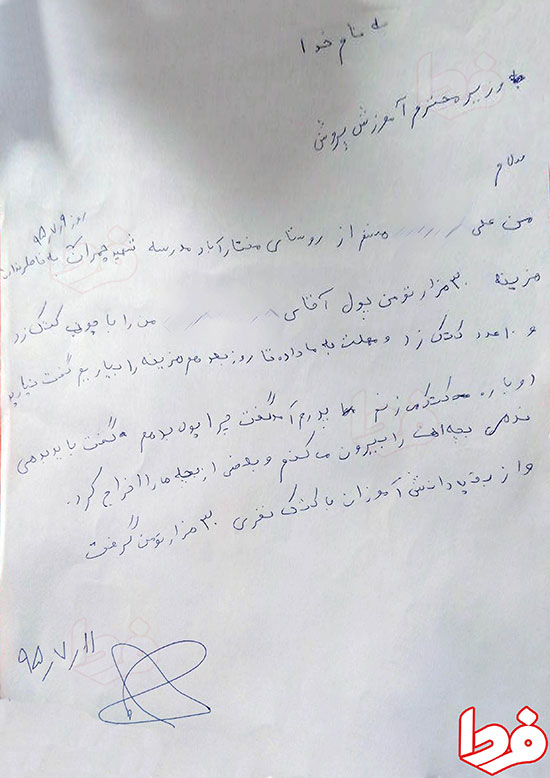 به نام خدا
وزیر محترم آموزش پروش
سلام
روز ۹۵٫۷٫۹
من علی هستم از روستای مختارآباد مدرسه شهید چمران به خاطر نداشتن
هزینه ۳۰ هزار تومن پول آقای من را با چوب کتک زد
و ۱۰ عدد کتک زد و مهلت به ما داد تا روز بعد هم هزینه را بیاریم گفت نیارید
دوباره کتک می زنم پدرم آمد گفت چرا پول بدهم گفت باید بدهی
ندهی بچه‌ات را بیرون می‌کنم و بعضی از بچه ها را اخراج کرد.
و از بقیه دانش آموزان با کتک نفری ۳۰ هزار تومن گرفت
۹۵٫۷٫۱۱
فردا